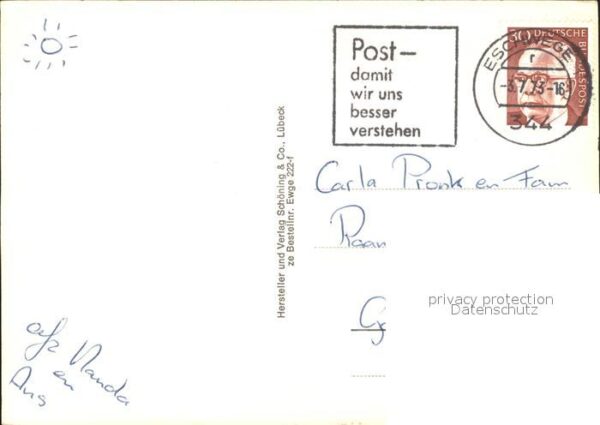 Post—
damit
wir uns
besser
verstehen
30 DEUTSCHE BUNDESPOST
ESCHWEGE
r
-3.7.73-16
344
Hersteller und Verlag Schöning & Co., Lübeck
ze Bestellnr. Ewge 222-f
Carla Pronk en Fam
privacy protection
Datenschutz
afz Nanda
en
Ans